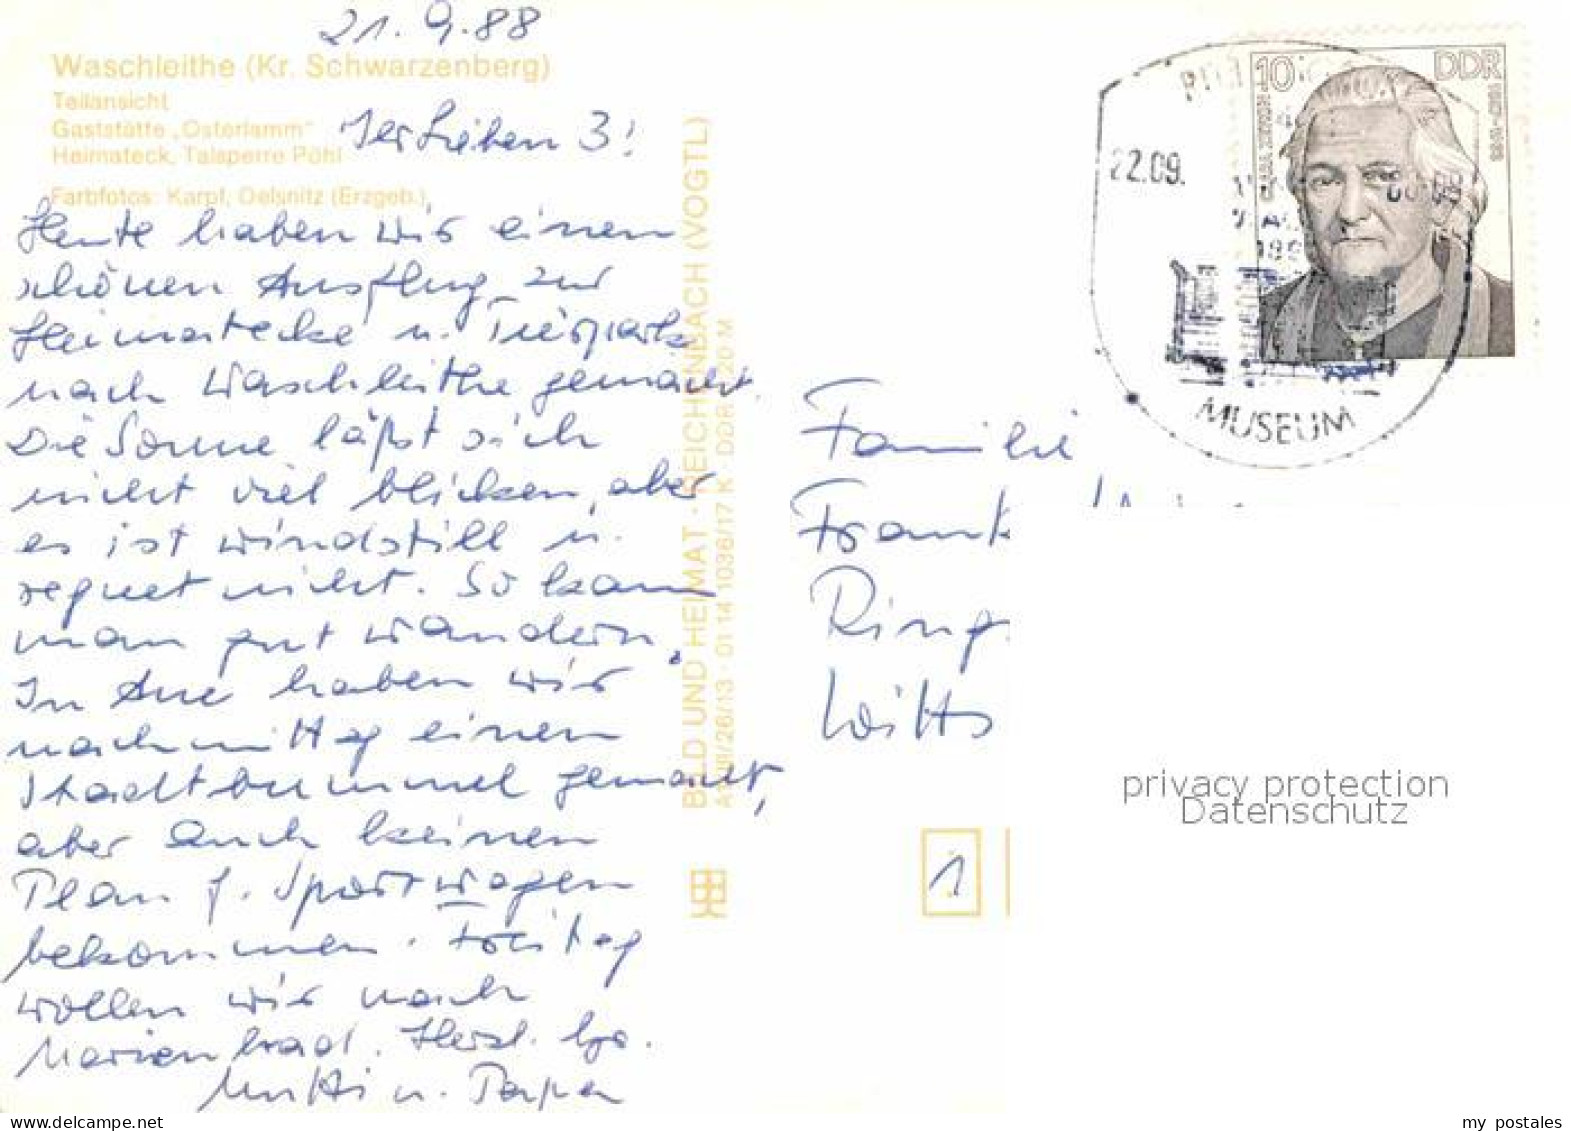 21.9.88
Waschleithe (Kr. Schwarzenberg)
Teilansicht
Gaststätte „Osterlamm"
Heimateck, Talsperre Pöhl
Farbfotos: Karpf, Oelsnitz (Erzgeb.)
Ihr Lieben 3!
Heute haben wir einen
schönen Ausflug zur
Heimatecke u. Tierpark
nach Waschleithe gemacht.
Die Sonne läßt sich
nicht viel blicken, aber
es ist windstill u.
regnet nicht. So kann
man gut wandern.
In Aue haben wir
nachmittag einen
Stadtbummel gemacht,
aber auch keinen
Plan f. Sportwagen
bekommen. Freitag
wollen wir nach
Marienbad. Herzl.
Mutti u. Papa
BILD UND HEIMAT · REICHENBACH (VOGTL)
01 14 1036/17 K DDR 20 M
10
DDR
CLARA ZETKIN
22.09.
MUSEUM
Familie
Frank
Ring
1
privacy protection
Datenschutz
www.delcampe.net
my_postales